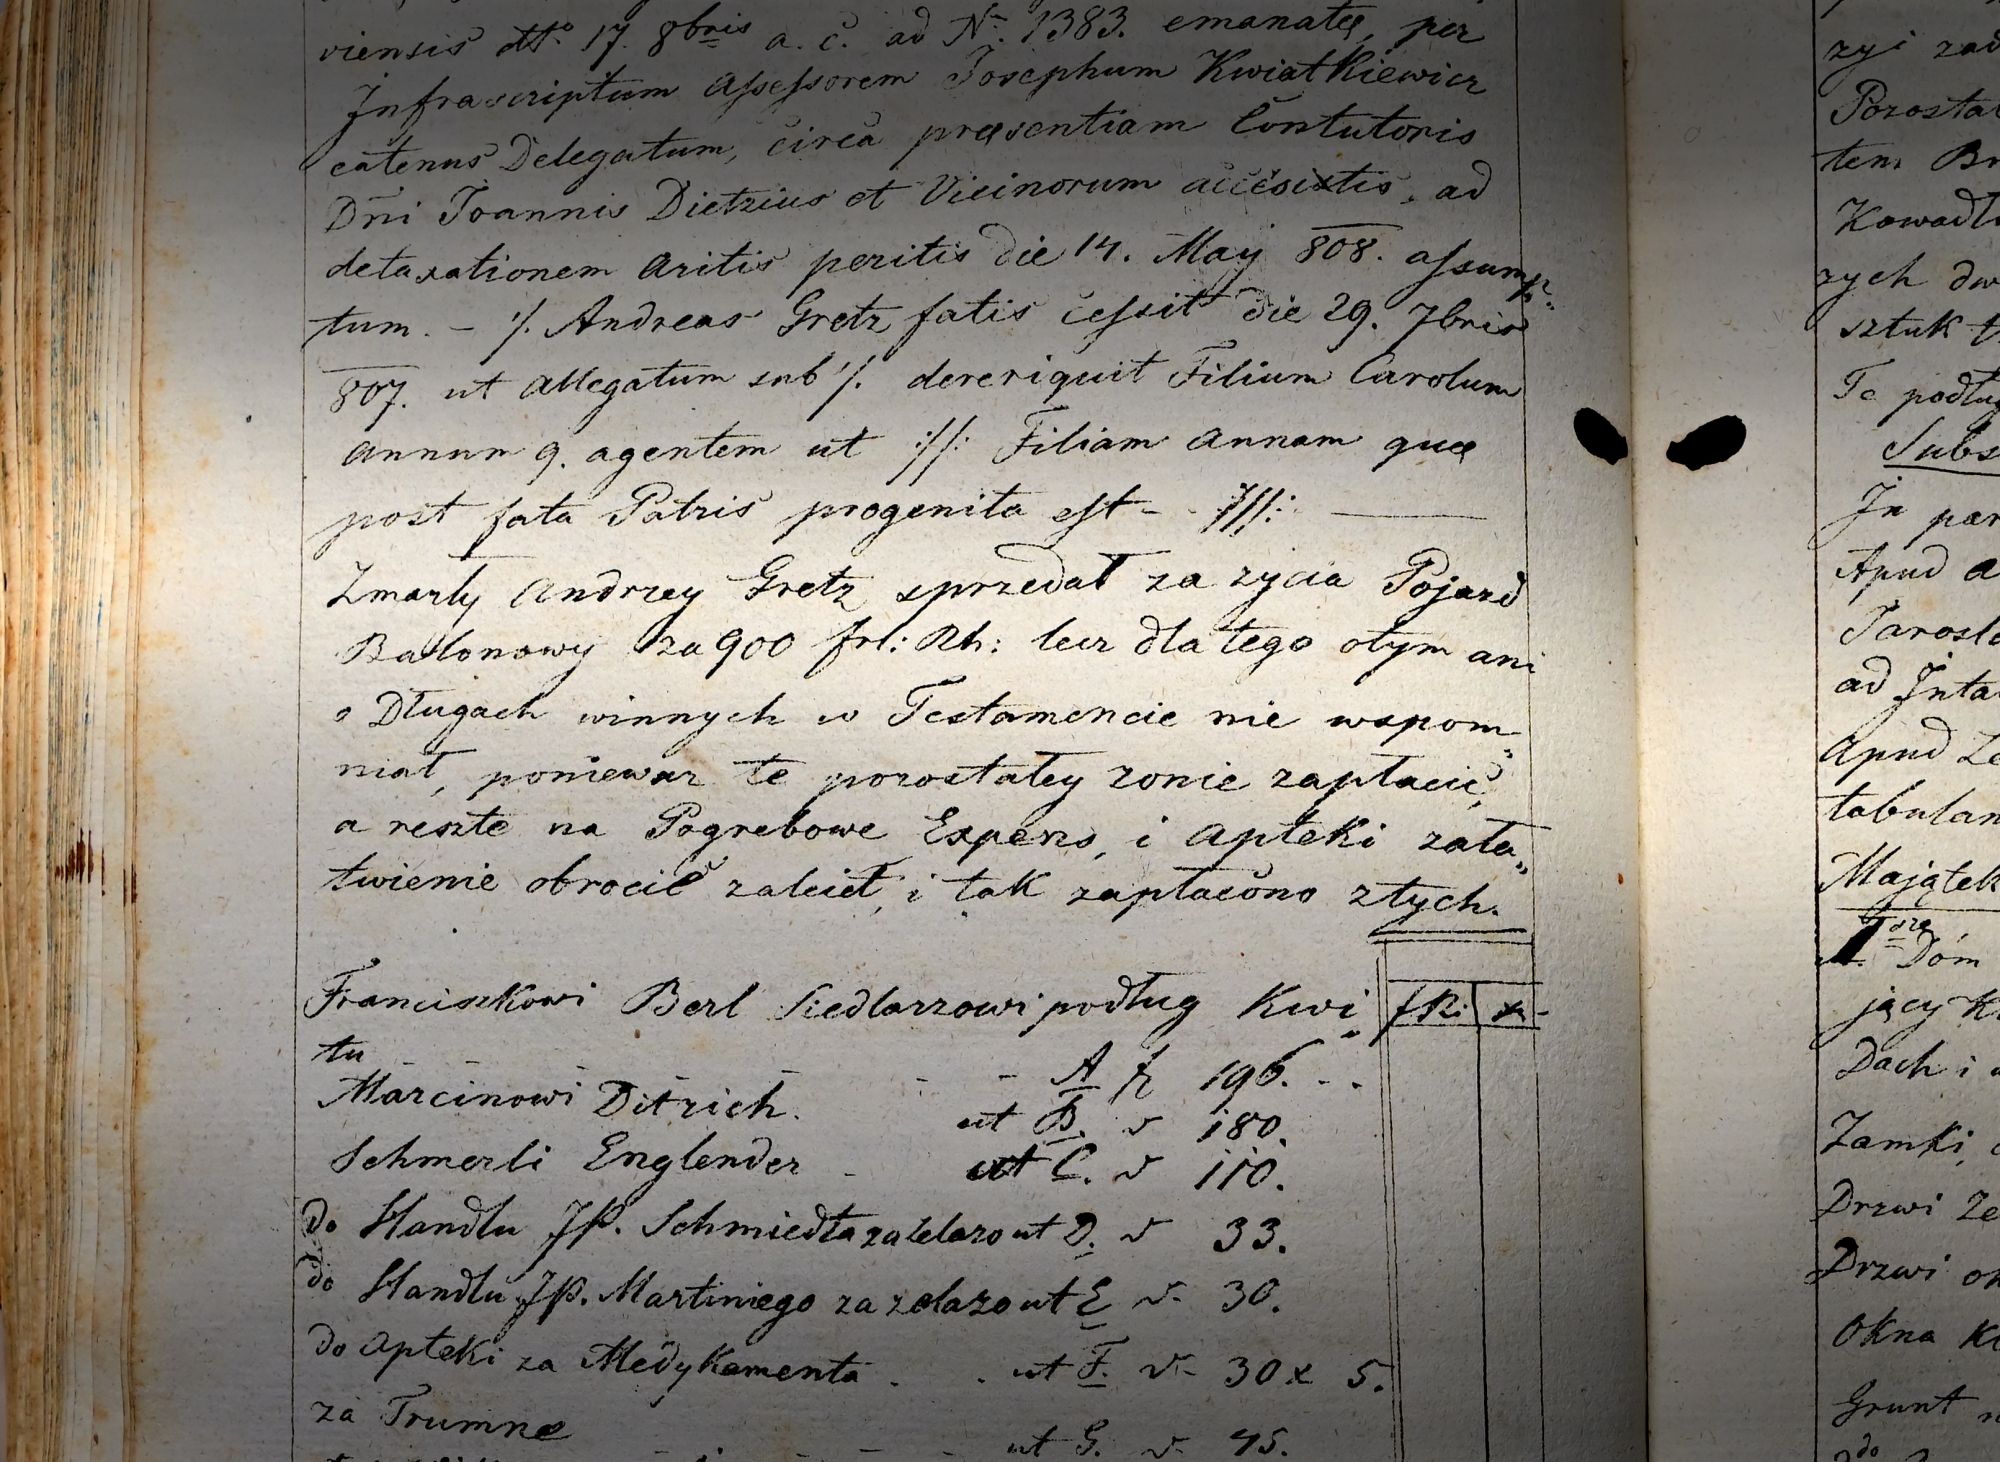 viensis dtto 17. 8bris a. c. ad Nr. 1383. emanatę, per
Infrascriptum Assessorem Josephum Kwiatkiewicz
eatenus Delegatum, circa pręsentiam Contutoris
Dni Joannis Dietzius et Vicinorum ad
detaxationem Aritis peritis die 14. May 808. assump„
tum. – ·/. Andreas Gretz fatis cessit die 29. 7bris
807. ut Allegatum sub ·/. dereriquit Filium Carolum
annum 9. agentem ut ://: Filiam Annam quę
post fata Patris progenita est - - ///: ———
Zmarly Andrzey Gretz sprzedał za zycia Pojazd
Balonowy za 900 fr: Rh: lecz dla tego otym ani
o Długach winnych w Testamencie nie wspom„
niał, poniewaz te pozostałey zonie zapłacić,
a reszte na Pogrebowe Expens, i Apteki zała„
twienie obrocić zalcił, i tak zapłacono złtych.
Franciszkowi Berl Siedlarzowi podług Kwi„ fRi xr
tu - - - - - A fr 196. - -
Marcinowi Ditrich. ut B. v 180.
Schmerli Englender - ut C. v 110.
do Handlu JP. Schmiedta za zelazo ut D. v 33.
do Handlu JP. Martiniego za zelazo ut E v 30.
do Apteki za Medykamenta . . ut F. v 30 x 5.
za Trumne - - - - ut G. v 45.
zyi zad
Pozosta
tem Br
Kowadł
zych dw
sztuk
Te podług
Subs
In par
Apud a
Jarosl
ad Inta
Apud Ze
tabulan
Majątek
1sze Dóm
jący K
Dach i
Zamki,
Drzwi Ze
Drzwi ok
Okna K
Grunt n